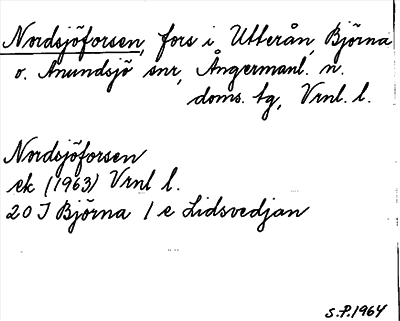 Nordsjöforsen, fors i Utterån, Björna
o. Anundsjö snr, Ångermanl. n.
doms. tg, Vrnl. l.
Nordsjöforsen
ek (1963) Vrnl l.
20 I Björna 1 e Lidsvedjan
S.P.1964